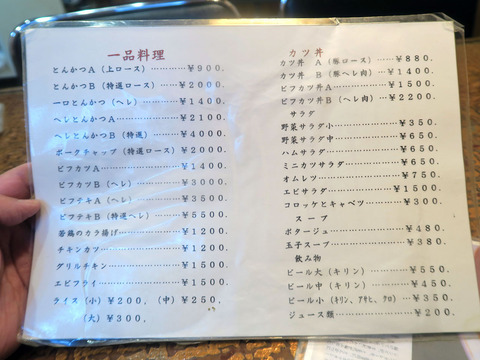 一品料理
とんかつA（上ロース）…………¥900.
とんかつB（特選ロース）………¥2000.
一口とんかつ（ヘレ）……………¥1400.
ヘレとんかつA……………………¥2100.
ヘレとんかつB（特選）…………¥4000.
ポークチャップ（特選ロース）…¥2000.
ビフカツA…………………………¥1400.
ビフカツB（ヘレ）………………¥3000.
ビフテキA（ヘレ）………………¥3500.
ビフテキB（特選ヘレ）…………¥5500.
若鶏のカラ揚げ……………………¥1200.
チキンカツ…………………………¥1200.
グリルチキン………………………¥1500.
エビフライ…………………………¥1500.
ライス（小）¥200.（中）¥250.
（大）¥300.
カツ丼
カツ丼 A（豚ロース）……¥880.
カツ丼 B（豚ヘレ肉）……¥1400.
ビフカツ丼A…………………¥1500.
ビフカツ丼B（ヘレ肉）……¥2200.
サラダ
野菜サラダ小…………………¥350.
野菜サラダ中…………………¥450.
ハムサラダ……………………¥650.
ミニカツサラダ………………¥650.
オムレツ………………………¥750.
エビサラダ……………………¥1500.
コロッケとキャベツ…………¥300.
スープ
ポタージュ……………………¥480.
玉子スープ……………………¥380.
飲み物
ビール大（キリン）…………¥550.
ビール中（キリン）…………¥450.
ビール小（キリン、アサヒ、クロ）…¥350.
ジュース類……………………¥200.